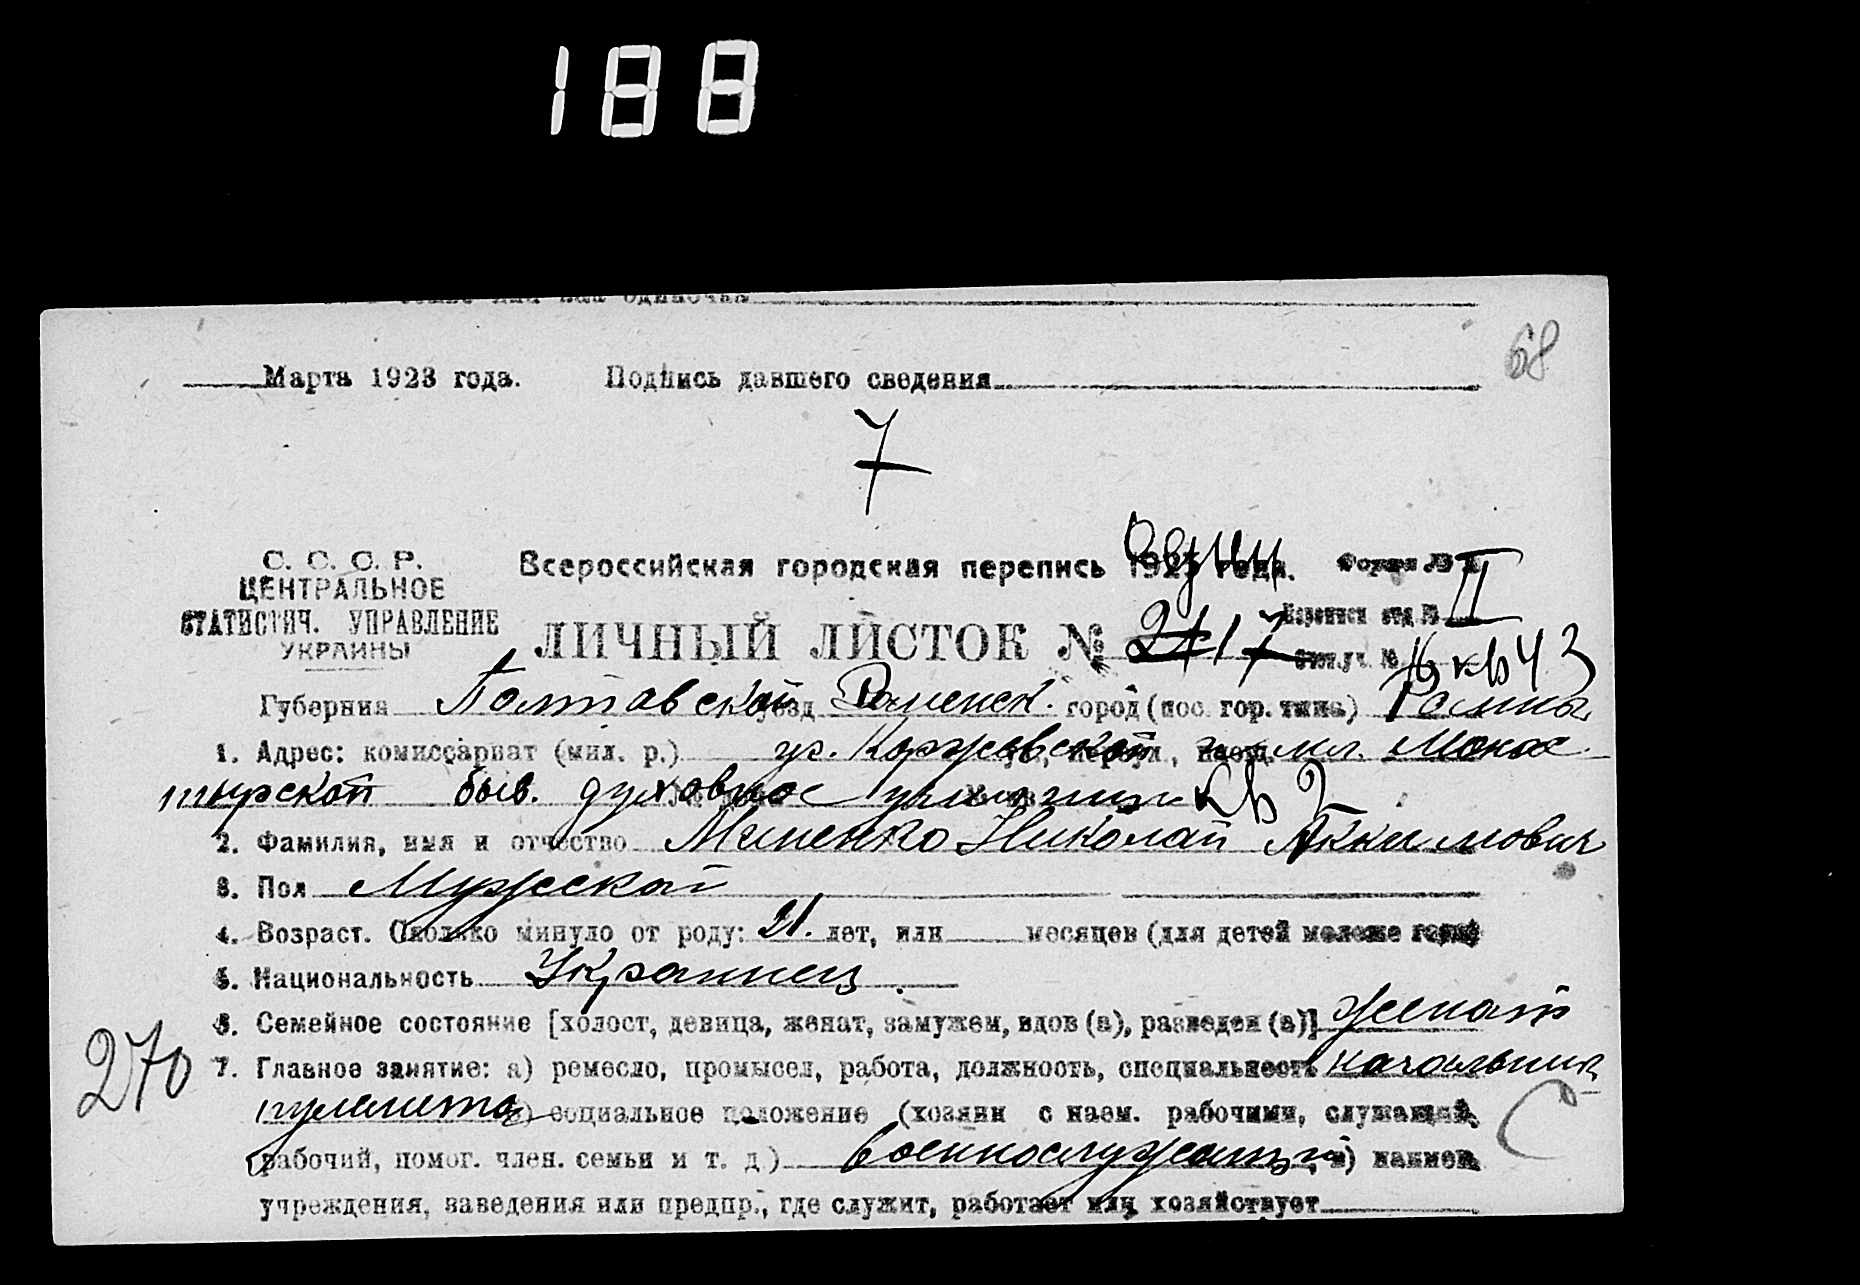 188
68
Марта 1923 года. Подпись давшего сведения
7
С. С. С. Р.
ЦЕНТРАЛЬНОЕ
СТАТИСТИЧ. УПРАВЛЕНИЕ
УКРАИНЫ
Всероссийская городская перепись 1923 года. Форма № II
Переписн отд №
ЛИЧНЫЙ ЛИСТОК № 217
кв 43
Губерния Полтавской уезд Роменск. город (пос. гор. типа) Ромны
1. Адрес: комиссариат (мил. р.) уг. Коржевской и пл. Монас
тырской быв. духовное училище кв 2
2. Фамилия, имя и отчество Миненко Николай Акимович
3. Пол Мужской
4. Возраст. Сколько минуло от роду: 21. лет, или месяцев (для детей моложе года)
5. Национальность Украинец.
6. Семейное состояние [холост, девица, женат, замужем, вдов (а), разведен (а)] женат
270
7. Главное занятие: а) ремесло, промысел, работа, должность, специальность начальник
пулемета б) социальное положение (хозяин с наем. рабочими, служащий,
рабочий, помог. член. семьи и т. д.) военнослужащий в) наимен.
учреждения, заведения или предпр., где служит, работает или хозяйствует